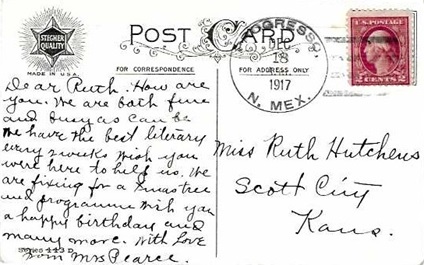 STECHER
QUALITY
MADE IN U.S.A.
POST CARD
FOR CORRESPONDENCE
FOR ADDRESS ONLY
PROGRESSO
DEC
18
1917
N. MEX.
U.S. POSTAGE
2 CENTS 2
Dear Ruth. How are
you. We are both fine
and busy as can be
We have the best literary
every 2 weeks wish you
were here to help us. We
are fixing for a Xmas tree
and programme wish you
a happy birthday and
many more. With Love
from Mrs Pearce.
SERIES 443 D
Miss Ruth Hutchens
Scott City
Kans.